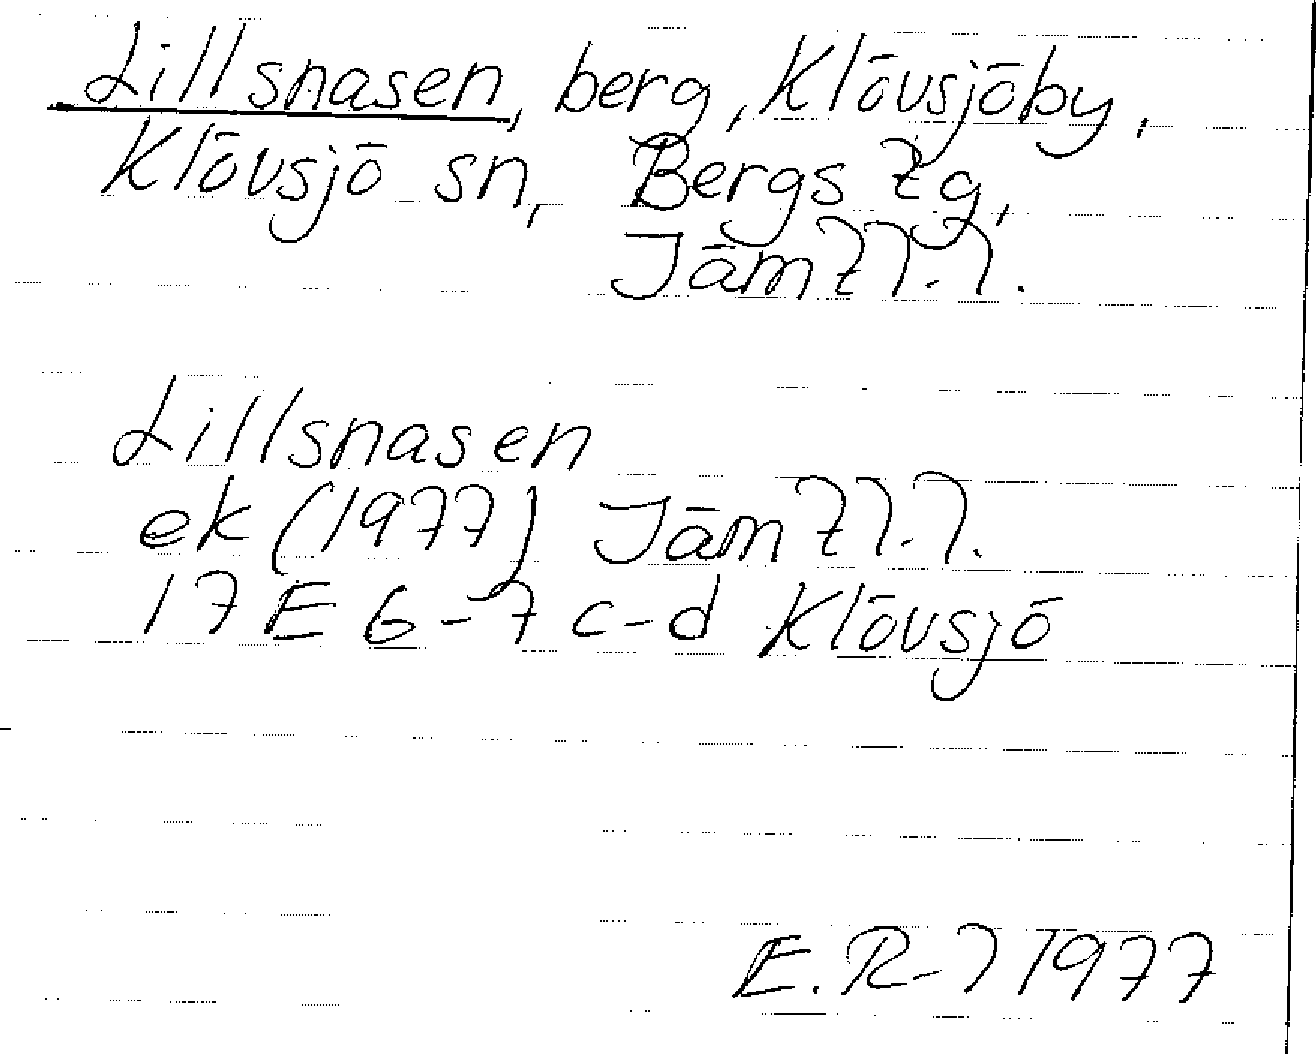 Lillsnasen, berg, Klövsjöby,
Klövsjö sn, Bergs tg,
Jämtl.l.
Lillsnasen
ek (1977) Jämtl.l.
17 E 6-7 c-d Klövsjö
1977